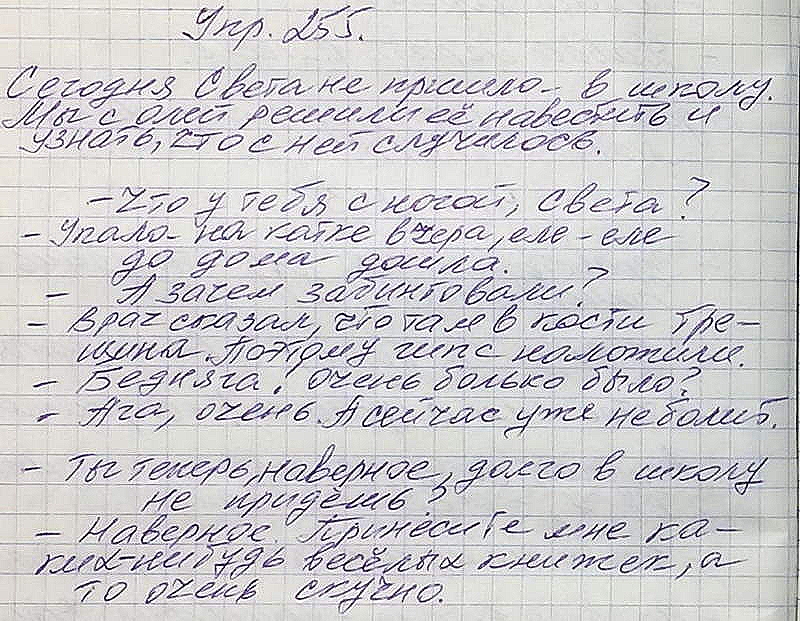 Упр. 255.
Сегодня Света не пришла в школу.
Мы с Олей решили её навестить и
узнать, что с ней случилось.
- Что у тебя с ногой, Света?
- Упала на катке вчера, еле-еле
до дома дошла.
- А зачем забинтовали?
- Врач сказал, что там в кости тре-
щина. Потому гипс наложили.
- Бедняга! Очень больно было?
- Ага, очень. А сейчас уже не болит.
- Ты теперь, наверное, долго в школу
не придёшь?
- Наверное. Принесите мне ка-
ких-нибудь весёлых книжек, а
то очень скучно.